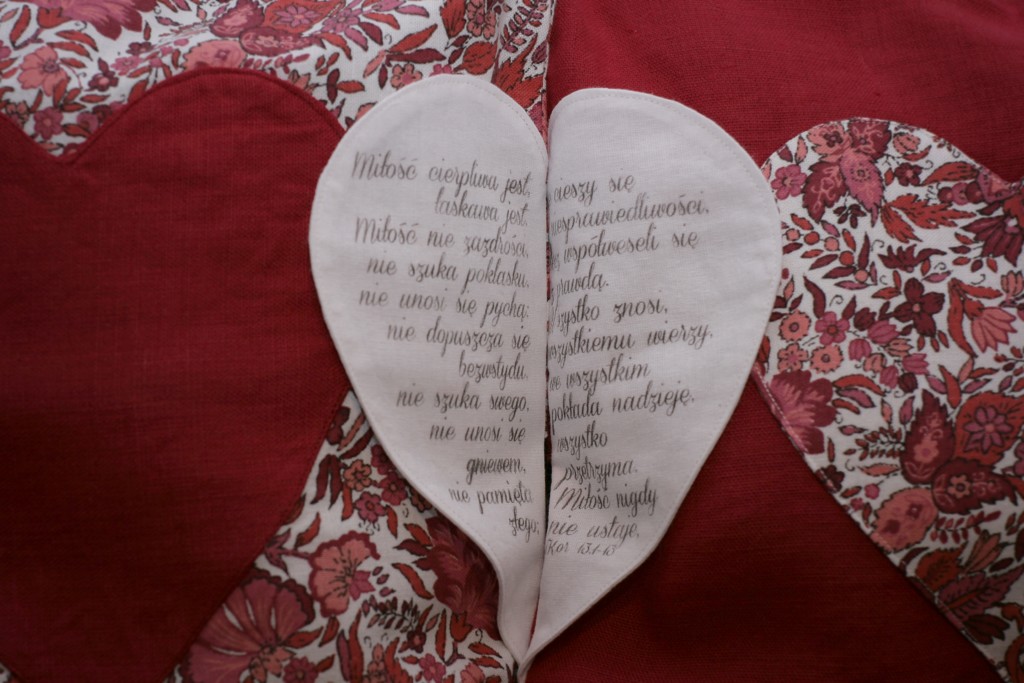 Miłość cierpliwa jest,
łaskawa jest.
Miłość nie zazdrości,
nie szuka poklasku,
nie unosi się pychą;
nie dopuszcza się
bezwstydu,
nie szuka swego,
nie unosi się
gniewem,
nie pamięta
złego;
cieszy się
niesprawiedliwości,
współweseli się
prawdą.
wszystko znosi,
wszystkiemu wierzy,
we wszystkim
pokłada nadzieję,
wszystko
przetrzyma.
Miłość nigdy
nie ustaje,
Kor 13.1-13